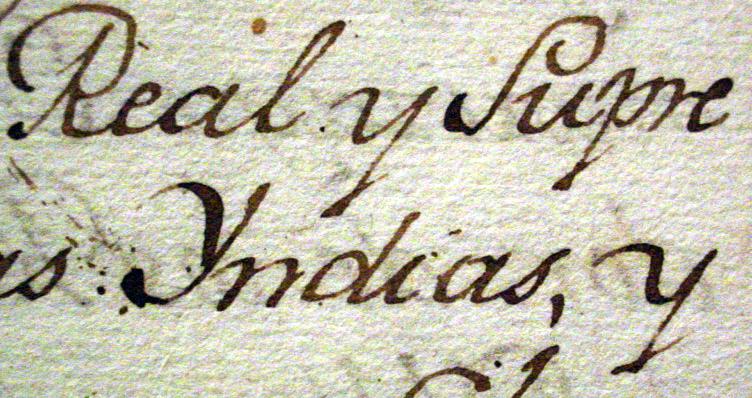 Real y Supre
as Yndias, y